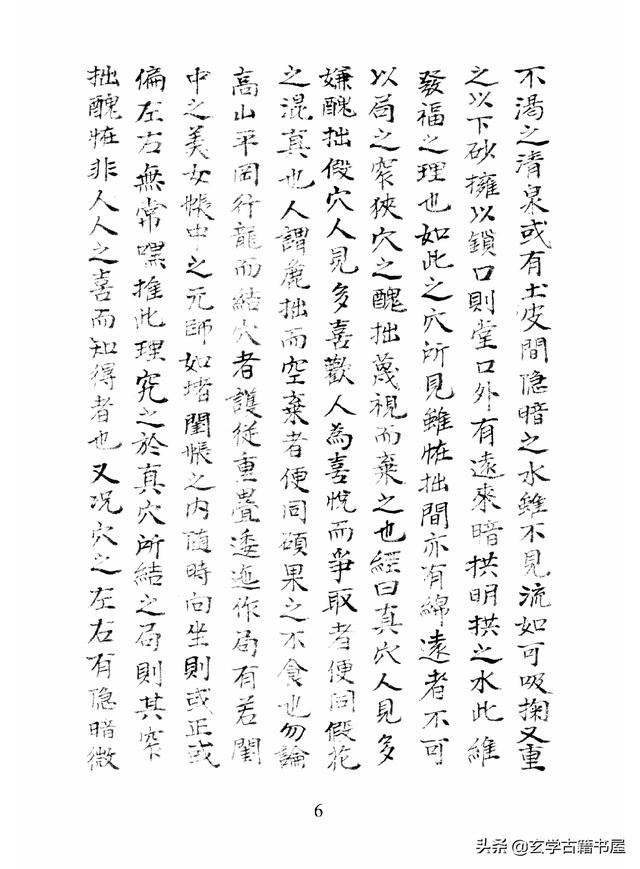 不渴之清泉或有土皮間隐暗之水雖不見流如可吸掬又重
之以下砂擁以鎖口則堂口外有遠來暗拱明拱之水此維
發福之理也如此之穴所見雖恠拙間亦有綿遠者不可
以局之窄狹穴之醜拙蔑視而棄之也經曰真穴人見多
嫌醜拙假穴人見多喜歡人為喜悅而爭取者便同假花
之混真也人謂麄拙而空棄者便同碩果之不食也勿論
高山平罔行龍而結穴者護從重疊逶迤作局有若閨
中之美女帳中之元帥如堵閨帳之内随時向坐則或正或
偏左右無常嘿推此理究之於真穴所結之局則其窄
拙醜恠非人人之喜而知得者也又况穴之左右有隐暗微
6
头条 @玄学古籍书屋